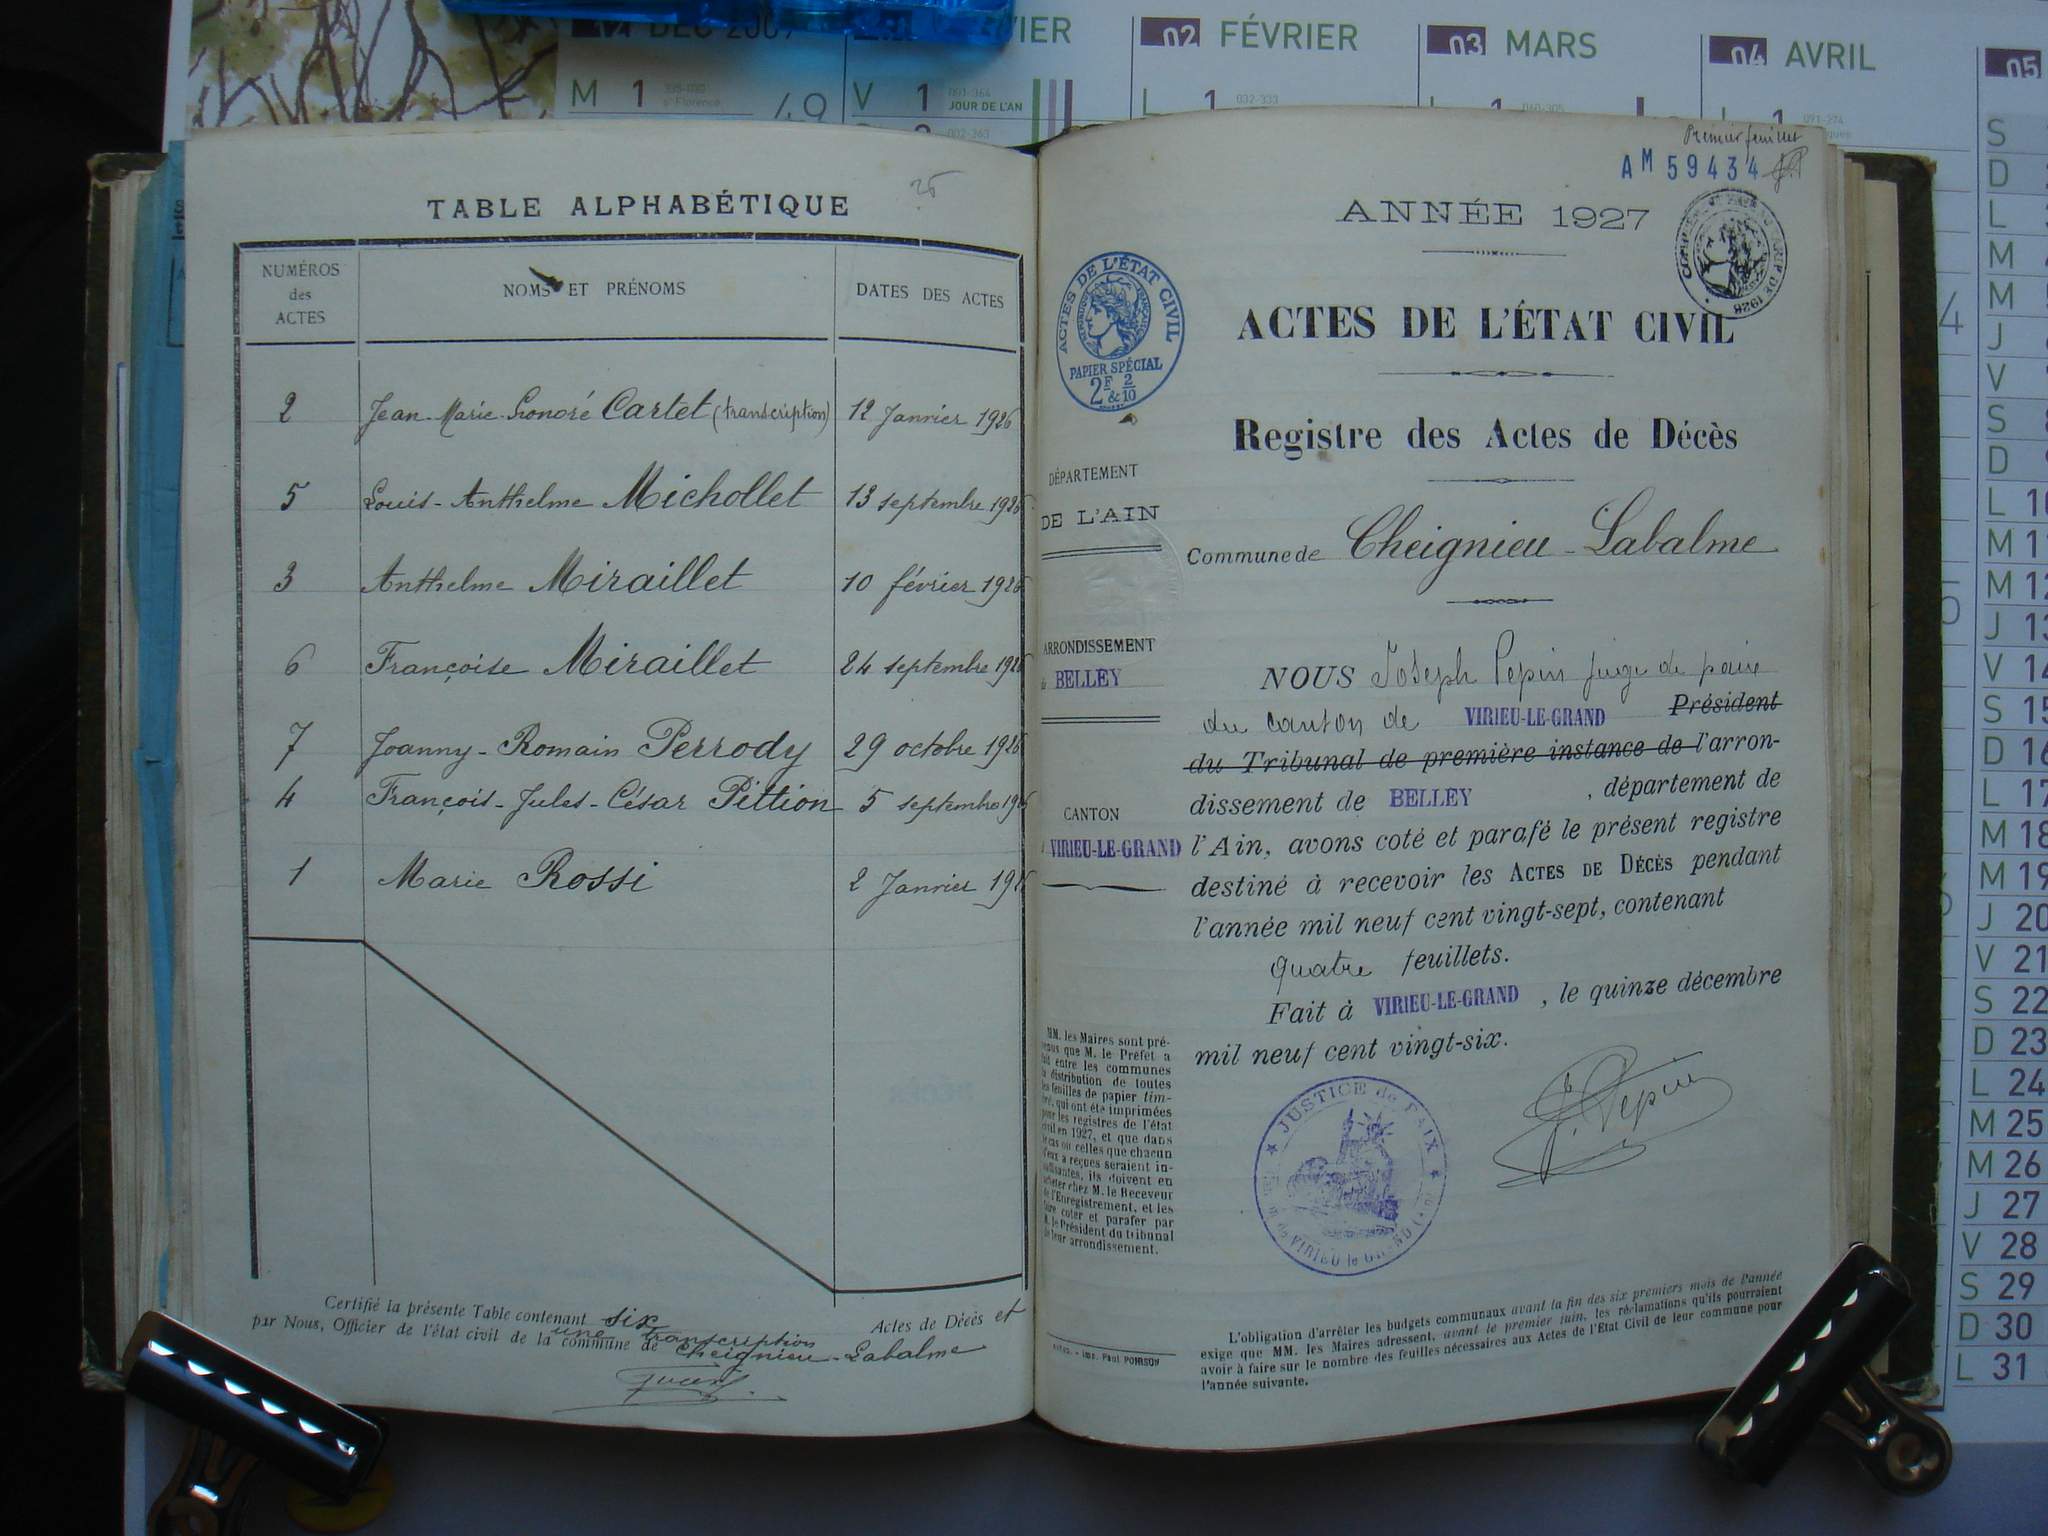 DEC 2009
VIER
02 FÉVRIER
03 MARS
04 AVRIL
05
M 1
49
V 1 001-364
JOUR DE L'AN
L 1 032-333
26
TABLE ALPHABÉTIQUE
NUMÉROS des ACTES
NOMS ET PRÉNOMS
DATES DES ACTES
2 Jean-Marie-Honoré Cartet (transcription) 12 Janvier 1926
5 Louis-Anthelme Michollet 13 septembre 1926
3 Anthelme Miraillet 10 février 1926
6 Françoise Miraillet 24 septembre 1926
7 Joanny-Romain Perrody 29 octobre 1926
4 François-Jules-César Pittion 5 septembre 1926
1 Marie Rossi 2 Janvier 1926
Certifié la présente Table contenant six Actes de Décès et
une transcription
par Nous, Officier de l'état civil de la commune de Cheignieu-Labalme
Premier feuillet
AM 59434
ANNÉE 1927
ACTES DE L'ÉTAT CIVIL
PAPIER SPÉCIAL
2F & 2/10
ACTES DE L'ÉTAT CIVIL
Registre des Actes de Décès
DÉPARTEMENT
DE L'AIN
Commune de Cheignieu-Labalme
ARRONDISSEMENT
de BELLEY
CANTON
VIRIEU-LE-GRAND
NOUS Joseph Pepin juge de paix
du canton de VIRIEU-LE-GRAND Président
du Tribunal de première instance de l'arron-
dissement de BELLEY , département de
l'Ain, avons coté et parafé le présent registre
destiné à recevoir les ACTES DE DÉCÈS pendant
l'année mil neuf cent vingt-sept, contenant
quatre feuillets.
Fait à VIRIEU-LE-GRAND , le quinze décembre
mil neuf cent vingt-six.
J. Pepin
JUSTICE de PAIX
de VIRIEU le GRAND
MM. les Maires sont pré-
venus que M. le Préfet a
fait entre les communes
la distribution de toutes
les feuilles de papier tim-
bré, qui ont été imprimées
pour les registres de l'état
civil en 1927, et que dans
le cas où celles que chacun
d'eux a reçues seraient in-
suffisantes, ils doivent en
acheter chez M. le Receveur
de l'Enregistrement, et les
faire coter et parafer par
M. le Président du tribunal
de leur arrondissement.
Imp. Paul POIRSON
L'obligation d'arrêter les budgets communaux avant la fin des six premiers mois de l'année
exige que MM. les Maires adressent, avant le premier juin, les réclamations qu'ils pourraient
avoir à faire sur le nombre des feuilles nécessaires aux Actes de l'Etat Civil de leur commune pour
l'année suivante.
S
D
L
M
M
J
V
S
D
L 10
M 11
M 12
J 13
V 14
S 15
D 16
L 17
M 18
M 19
J 20
V 21
S 22
D 23
L 24
M 25
M 26
J 27
V 28
S 29
D 30
L 31